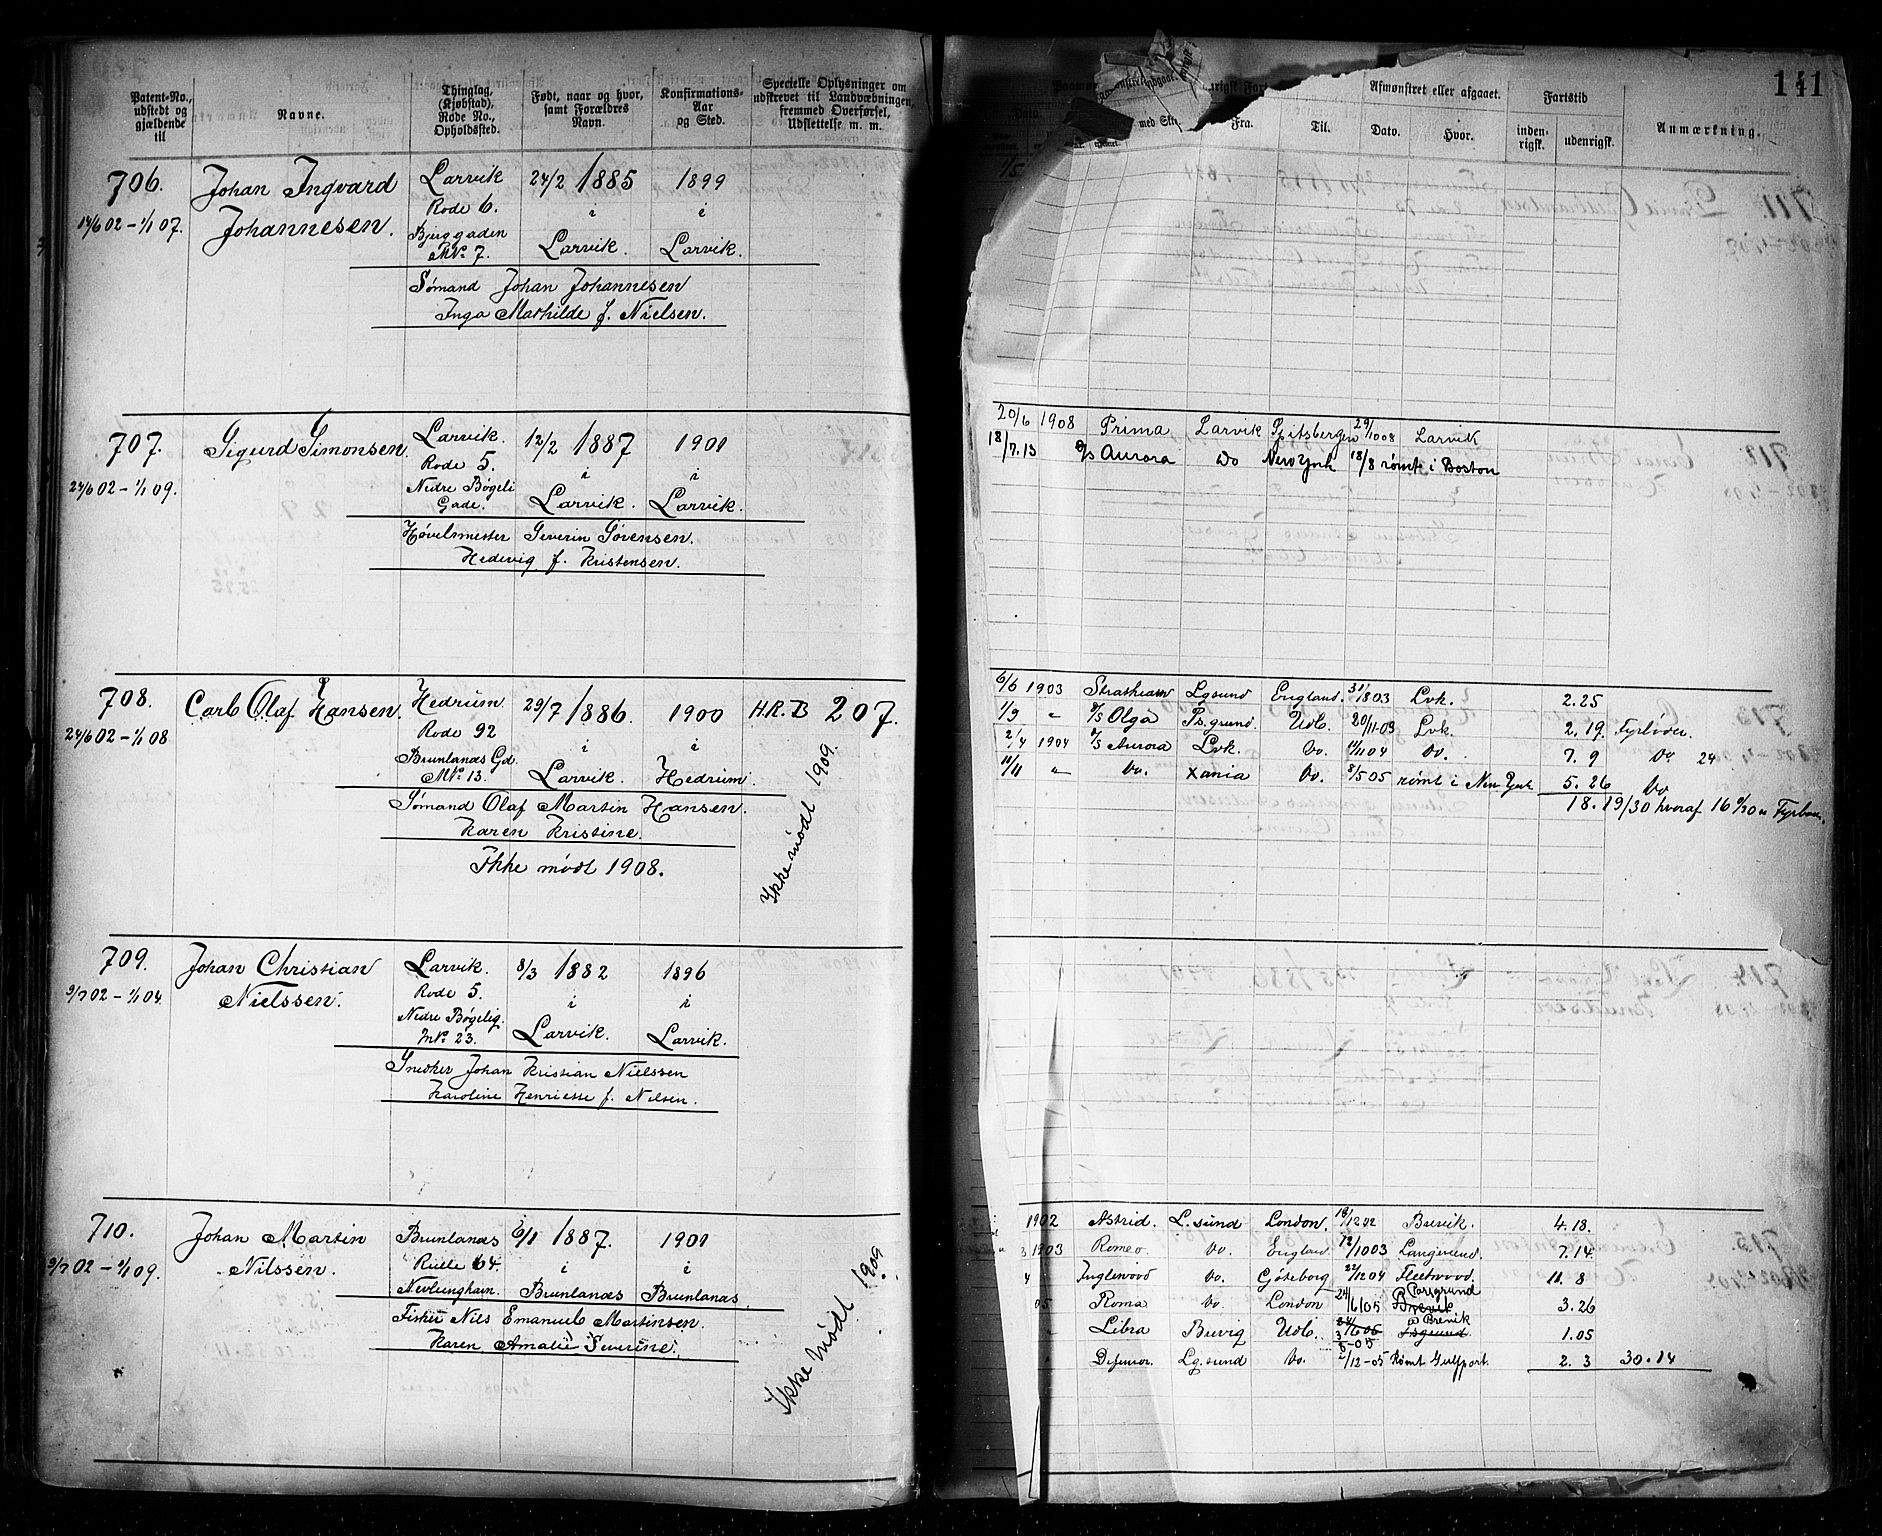 Patent-No., udstedt og gjældende til
Navne.
Thinglag, (Kjøbstad), Rode No., Opholdssted.
Født, naar og hvor, samt Forældres Navn.
Konfirmations-Aar og Sted.
Specielle Oplysninger om udskrevet til Landvæbningen, fremmed Overførsel, Udslettelse m. m.
141
Fra.
Til.
Afmønstret eller afgaaet.
Dato.
Hvor.
Fartstid
inden-rigsk.
udenrigsk.
Anmærkning.
706. Johan Ingvard Larvik 24/2 1885 1899
Rode 6. i i
14/6 02 - 1/1 07. Johannesen. Bjerggaden
No. 7. Larvik. Larvik.
Sømand Johan Johannesen
Inga Mathilde f. Nielsen.
707. Sigurd Simonsen. Larvik. 12/2 1887 1901
Rode 5. i i
24/6 02 - 1/1 09. Nedre Bøgeli
Gade. Larvik. Larvik.
Høvelsmester Severin Sørensen.
Hedevig f. Kristensen.
20/6 1908 Prima Larvik Spitsbergen 29/10 08 Larvik
18/7.13 s/s Aurora Do New York 18/8 rømt i Boston
708. Carl Olaf Hansen. Hedrum. 29/7 1886. 1900 H.R.B 207.
Rode 92 i i
24/6 02 - 1/1 08 Brunlanæs Gd.
No. 13. Larvik. Hedrum.
Sømand Olaf Martin Hansen.
Karen Kristine.
Ikke mødt 1908.
Ikke mødt 1909.
6/6 1903 Strathearn Lgsund England. 31/8 03 Lvk. 2.25
1/9 " s/s Olga Ps.grund. Udl. 20/11 03 Lvk. 2.19. Fyrbøder.
2/4 1904 s/s Aurora Lvk. Do. 11/11 04 Do. 7.9 Do 24
11/11 " Do. Xania Do. 8/5 05 rømt i New York 5.26 Do
18.19/30 hvoraf 16
709. Johan Christian Larvik. 8/3 1882 1896
Nielssen. Rode 5. i i
9/7 02 - 1/1 04. Nedre Bøgelig.
No. 23. Larvik. Larvik.
Snedker Johan Kristian Nielssen
Karoline Henriette f. Nilsen.
710. Johan Martin Brunlanæs 6/1 1887. 1901
Nilssen. 64. i i
9/7 02 - 1/1 09. Nevlungham. Brunlanæs Brunlanæs.
Fisker Nils Emanuel Martinsen.
Karen Amalie Severine.
Ikke mødt 1909
1902 Astrid. L.sund London. Brevik. 4.18.
1903 Romeo Do. England 12/10 03 Langesund. 7.14.
4 Inglewood Do. Göteborg 22/12 04 Fleetwood. 11.8
05 Roma Do. London 24/6 05 Porsgrund Brevik 3.26
" Libra Brevig Udl. Brevik 1.05
" Lg.sund Do. 2/12-05 Rømt Gulfport. 2.3 30.14